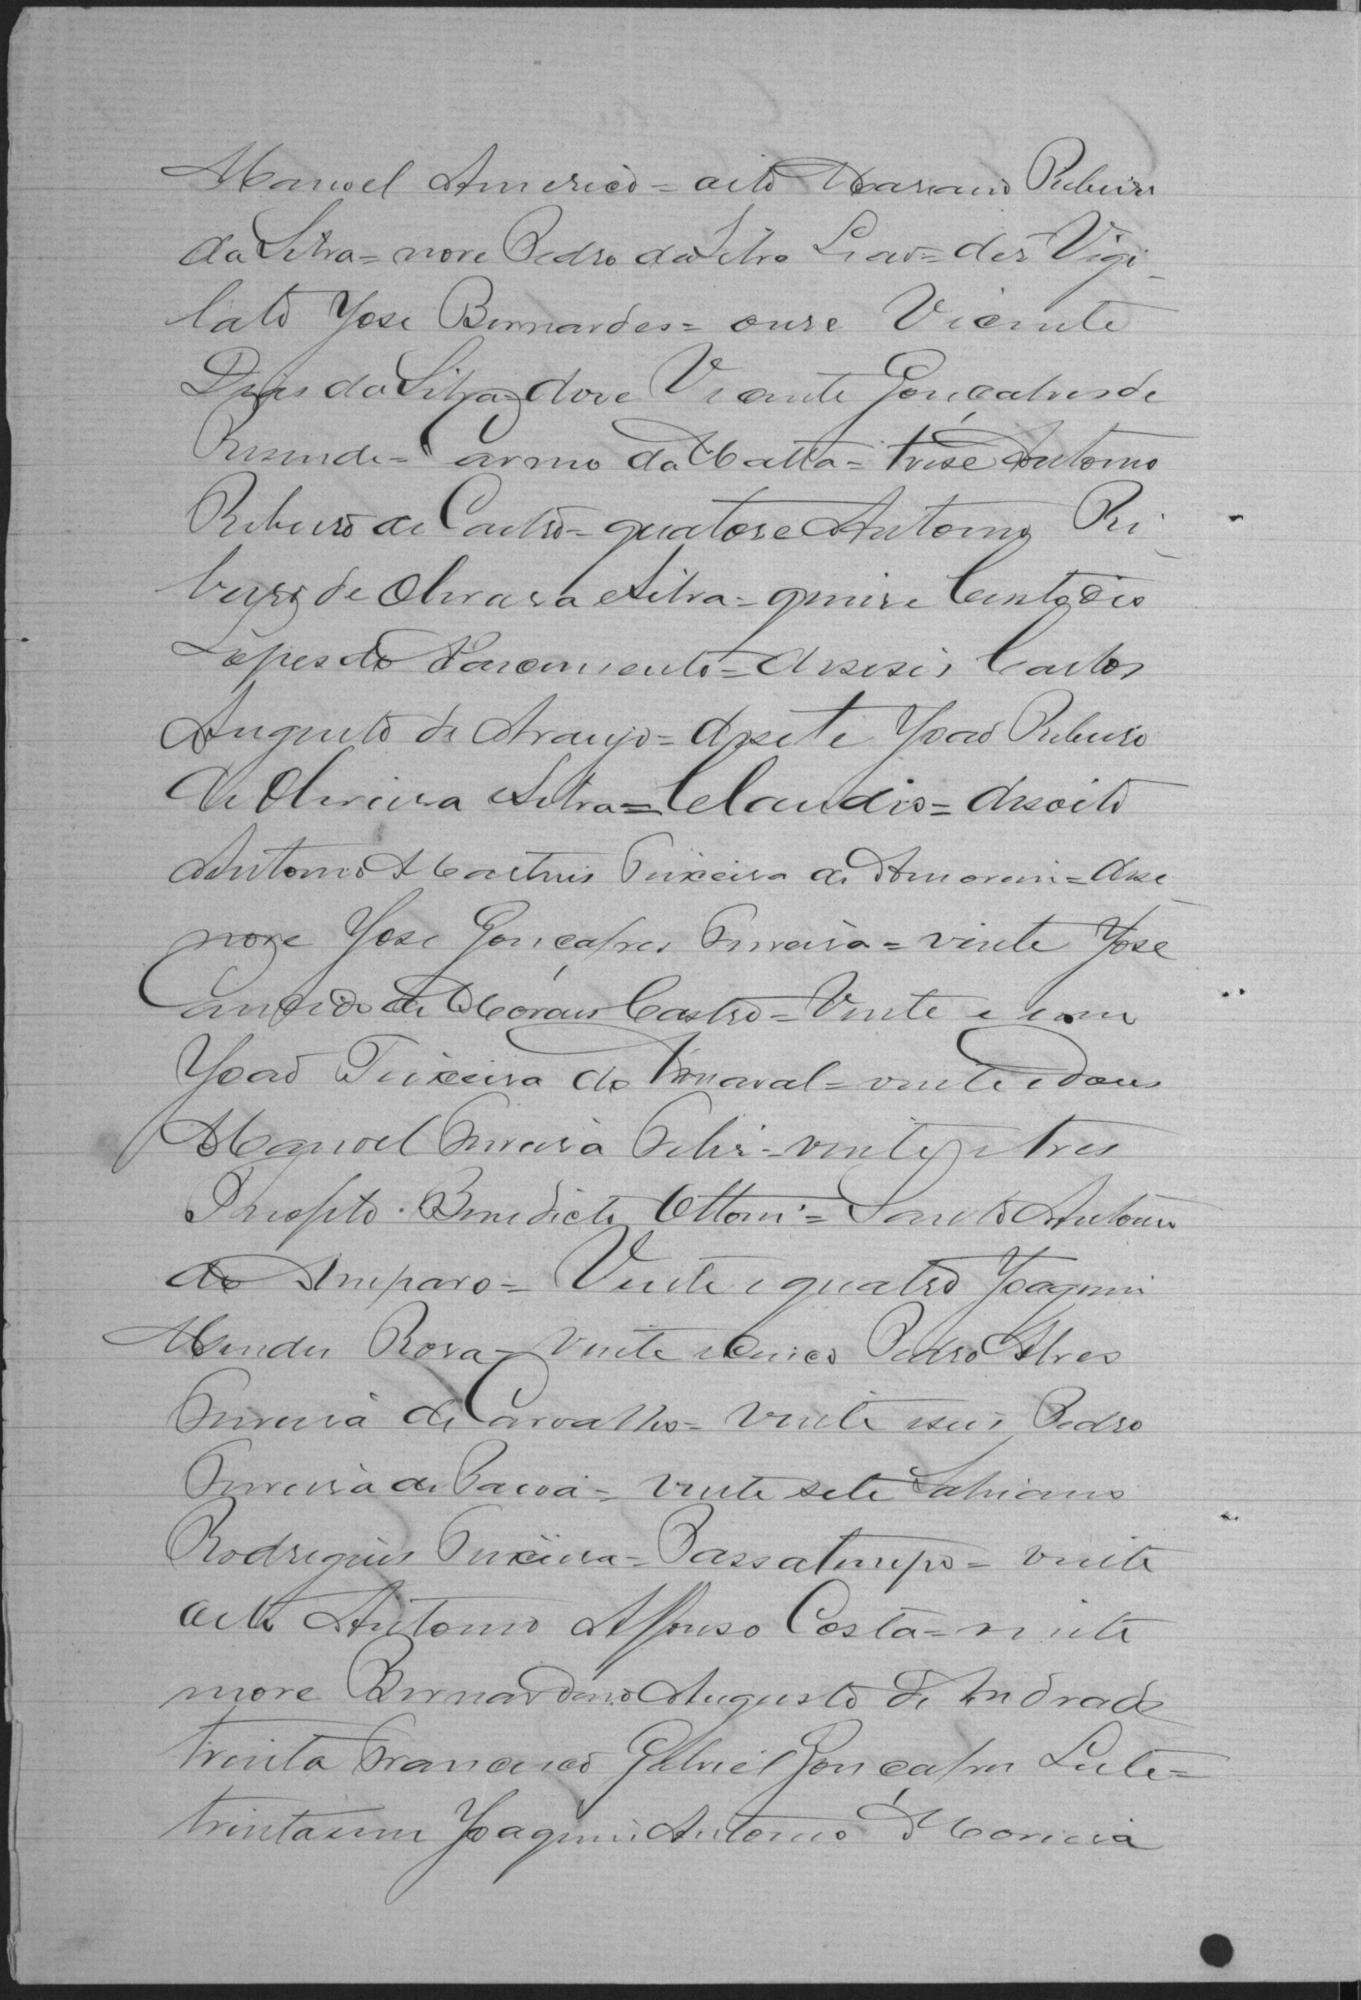 Manoel Americo = oito Mariano Ribeiro
da Silva = nove Pedro da Silva Leao = dez Vigi-
lato Jose Bernardes = onze Vicente
Dias da Silva = doze Vicente Gonçalves de
Resende = Carmo da Matta = treze Antonio
Ribeiro de Castro = quatorze Antonio Ri-
beiro de Oliveira e Silva = quinze Custodio
Lopes do Sacramento = deseseis Carlos
Augusto de Araujo = desete João Ribeiro
de Oliveira e Silva = Claudio = desoito
Antonio Martins Teixeira de Amorim = dese
nove Jose Gonçalves Ferreira = vinte Jose
Candido de Moraes Castro = Vinte e um
João Teixeira do Amaral = vinte e dous
Manoel Ferreira Felix = vinte e tres
Benedicto Ottoni = Santo Antonio
do Amparo = Vinte e quatro Joaquim
Mendes Rosa = vinte e cinco Pedro Alves
Ferreira de Carvalho = vinte e seis Pedro
Ferreira de = vinte sete
Rodrigues Teixeira = Passatempo = vinte
oito Antonio Affonso Costa = vinte
nove Bernardino Augusto de Andrade
trinta Francisco Gabriel Gonçalves Leite =
trinta e um Joaquim Antonio